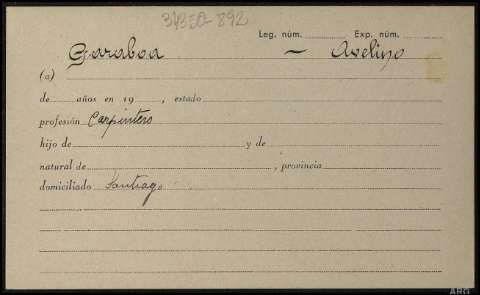 31350-892
Leg. núm. Exp. núm.
Garaboa — Avelino
(a)
de años en 19 , estado
profesión Carpintero
hijo de y de
natural de , provincia
domiciliado Santiago
ARG